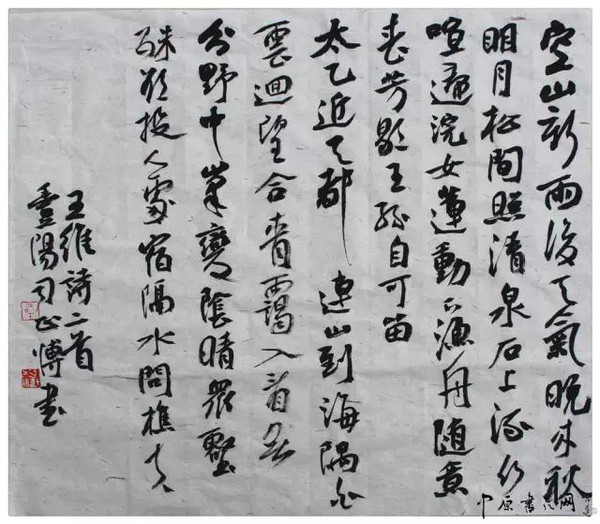 空山新雨後天氣晚來秋
明月松間照清泉石上流竹
喧歸浣女蓮動下漁舟隨意
春芳歇王孫自可留
太乙近天都 連山到海隅白
雲迴望合青靄入看無
分野中峯變陰晴眾壑
殊欲投人處宿隔水問樵夫
王維詩二首
陽司正博書
中原書法网